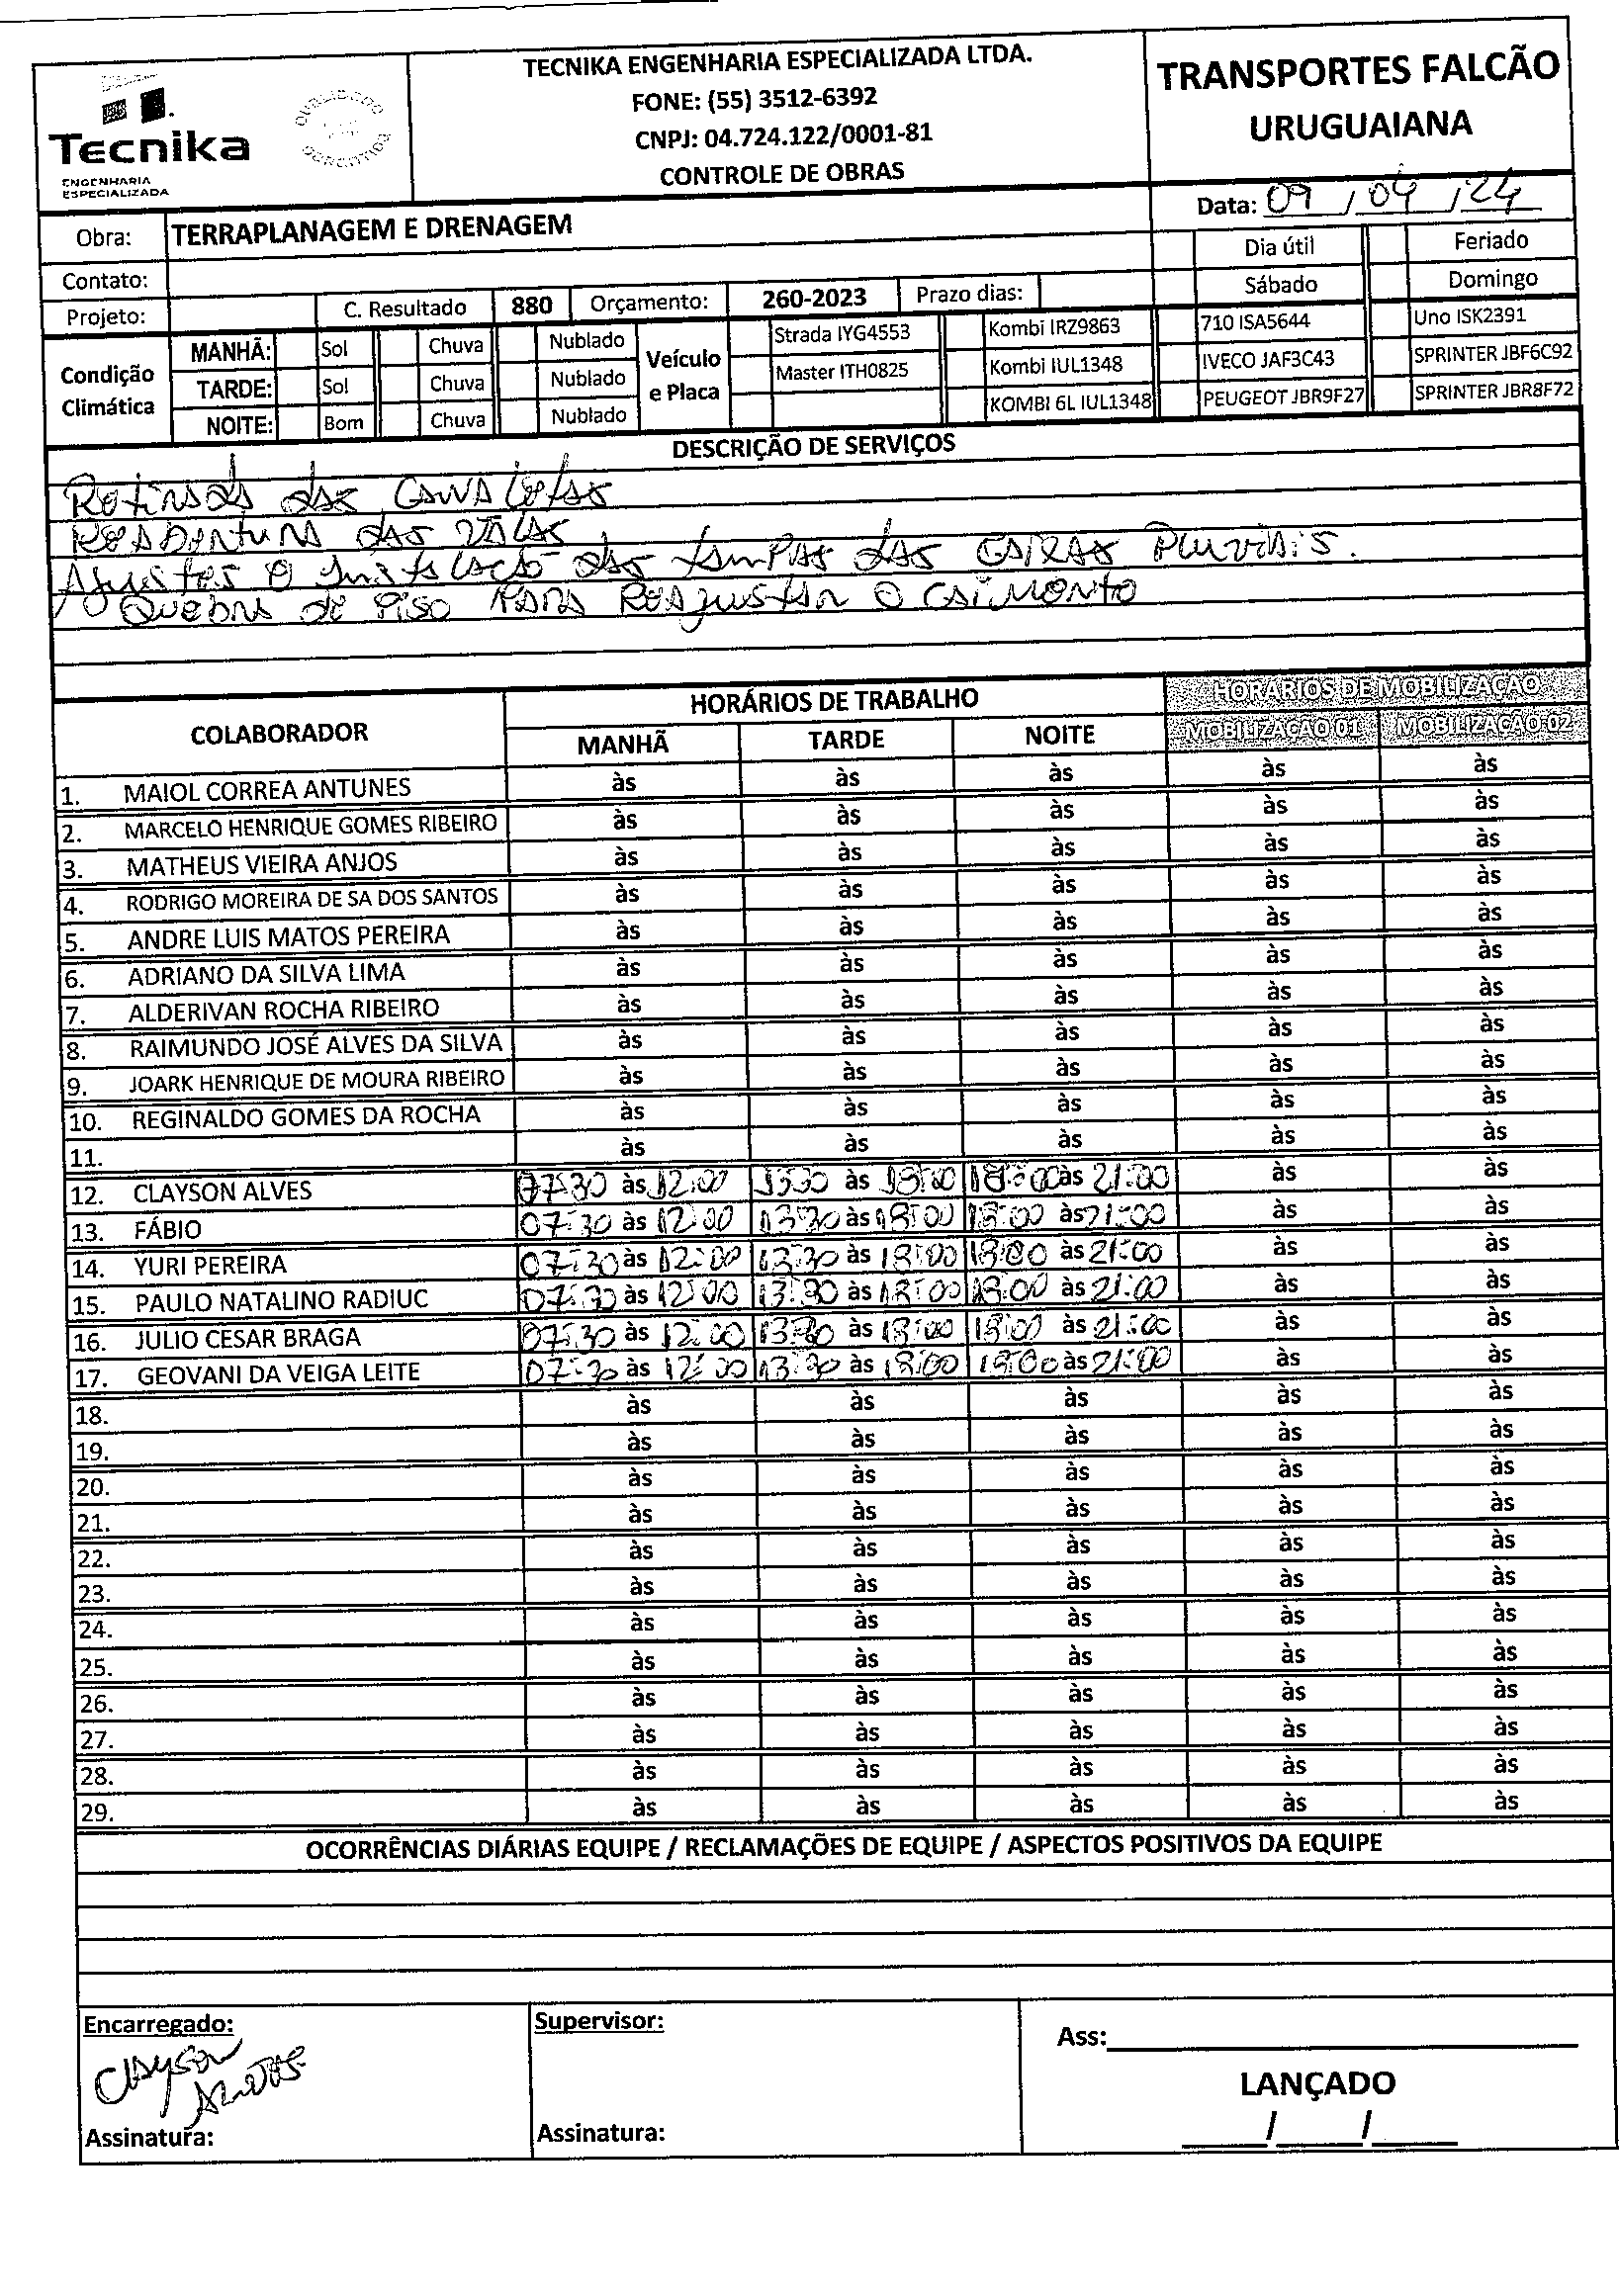 TECNIKA ENGENHARIA ESPECIALIZADA LTDA.
FONE: (55) 3512-6392
CNPJ: 04.724.122/0001-81
CONTROLE DE OBRAS
Tecnika
ENGENHARIA
ESPECIALIZADA
TRANSPORTES FALCÃO
URUGUAIANA
Data: 09 / 04 / 24
Obra: TERRAPLANAGEM E DRENAGEM
Dia útil Feriado
Contato:
Sábado Domingo
Projeto: C. Resultado 880 Orçamento: 260-2023 Prazo dias:
Condição Climática
MANHÃ: Sol Chuva Nublado
TARDE: Sol Chuva Nublado
NOITE: Bom Chuva Nublado
Veículo e Placa
Strada IYG4553 Kombi IRZ9863 710 ISA5644 Uno ISK2391
Master ITH0825 Kombi IUL1348 IVECO JAF3C43 SPRINTER JBF6C92
KOMBI 6L IUL1348 PEUGEOT JBR9F27 SPRINTER JBR8F72
DESCRIÇÃO DE SERVIÇOS
Retirada das Canaletas
Reabertura das valas
Ajustes e instalação das tampas das caixas Pluviais.
Quebra de Piso para Reajustar o caimento
COLABORADOR HORÁRIOS DE TRABALHO HORÁRIOS DE MOBILIZAÇÃO
MANHÃ TARDE NOITE MOBILIZAÇÃO 01 MOBILIZAÇÃO 02
1. MAIOL CORREA ANTUNES às às às às às
2. MARCELO HENRIQUE GOMES RIBEIRO às às às às às
3. MATHEUS VIEIRA ANJOS às às às às às
4. RODRIGO MOREIRA DE SA DOS SANTOS às às às às às
5. ANDRE LUIS MATOS PEREIRA às às às às às
6. ADRIANO DA SILVA LIMA às às às às às
7. ALDERIVAN ROCHA RIBEIRO às às às às às
8. RAIMUNDO JOSÉ ALVES DA SILVA às às às às às
9. JOARK HENRIQUE DE MOURA RIBEIRO às às às às às
10. REGINALDO GOMES DA ROCHA às às às às às
11. às às às às às
12. CLAYSON ALVES 07:30 às 12:00 1330 às 18:00 18:00 às 21:00 às às
13. FÁBIO 07:30 às 12:00 13:30 às 18:00 18:00 às 21:00 às às
14. YURI PEREIRA 07:30 às 12:00 13:30 às 18:00 18:00 às 21:00 às às
15. PAULO NATALINO RADIUC 07:30 às 12:00 13:30 às 18:00 18:00 às 21:00 às às
16. JULIO CESAR BRAGA 07:30 às 12:00 13:30 às 18:00 18:00 às 21:00 às às
17. GEOVANI DA VEIGA LEITE 07:30 às 12:00 13:30 às 18:00 18:00 às 21:00 às às
18. às às às às às
19. às às às às às
20. às às às às às
21. às às às às às
22. às às às às às
23. às às às às às
24. às às às às às
25. às às às às às
26. às às às às às
27. às às às às às
28. às às às às às
29. às às às às às
OCORRÊNCIAS DIÁRIAS EQUIPE / RECLAMAÇÕES DE EQUIPE / ASPECTOS POSITIVOS DA EQUIPE
Encarregado: Supervisor: Ass:
Clayson
LANÇADO
Assinatura: Assinatura: / /